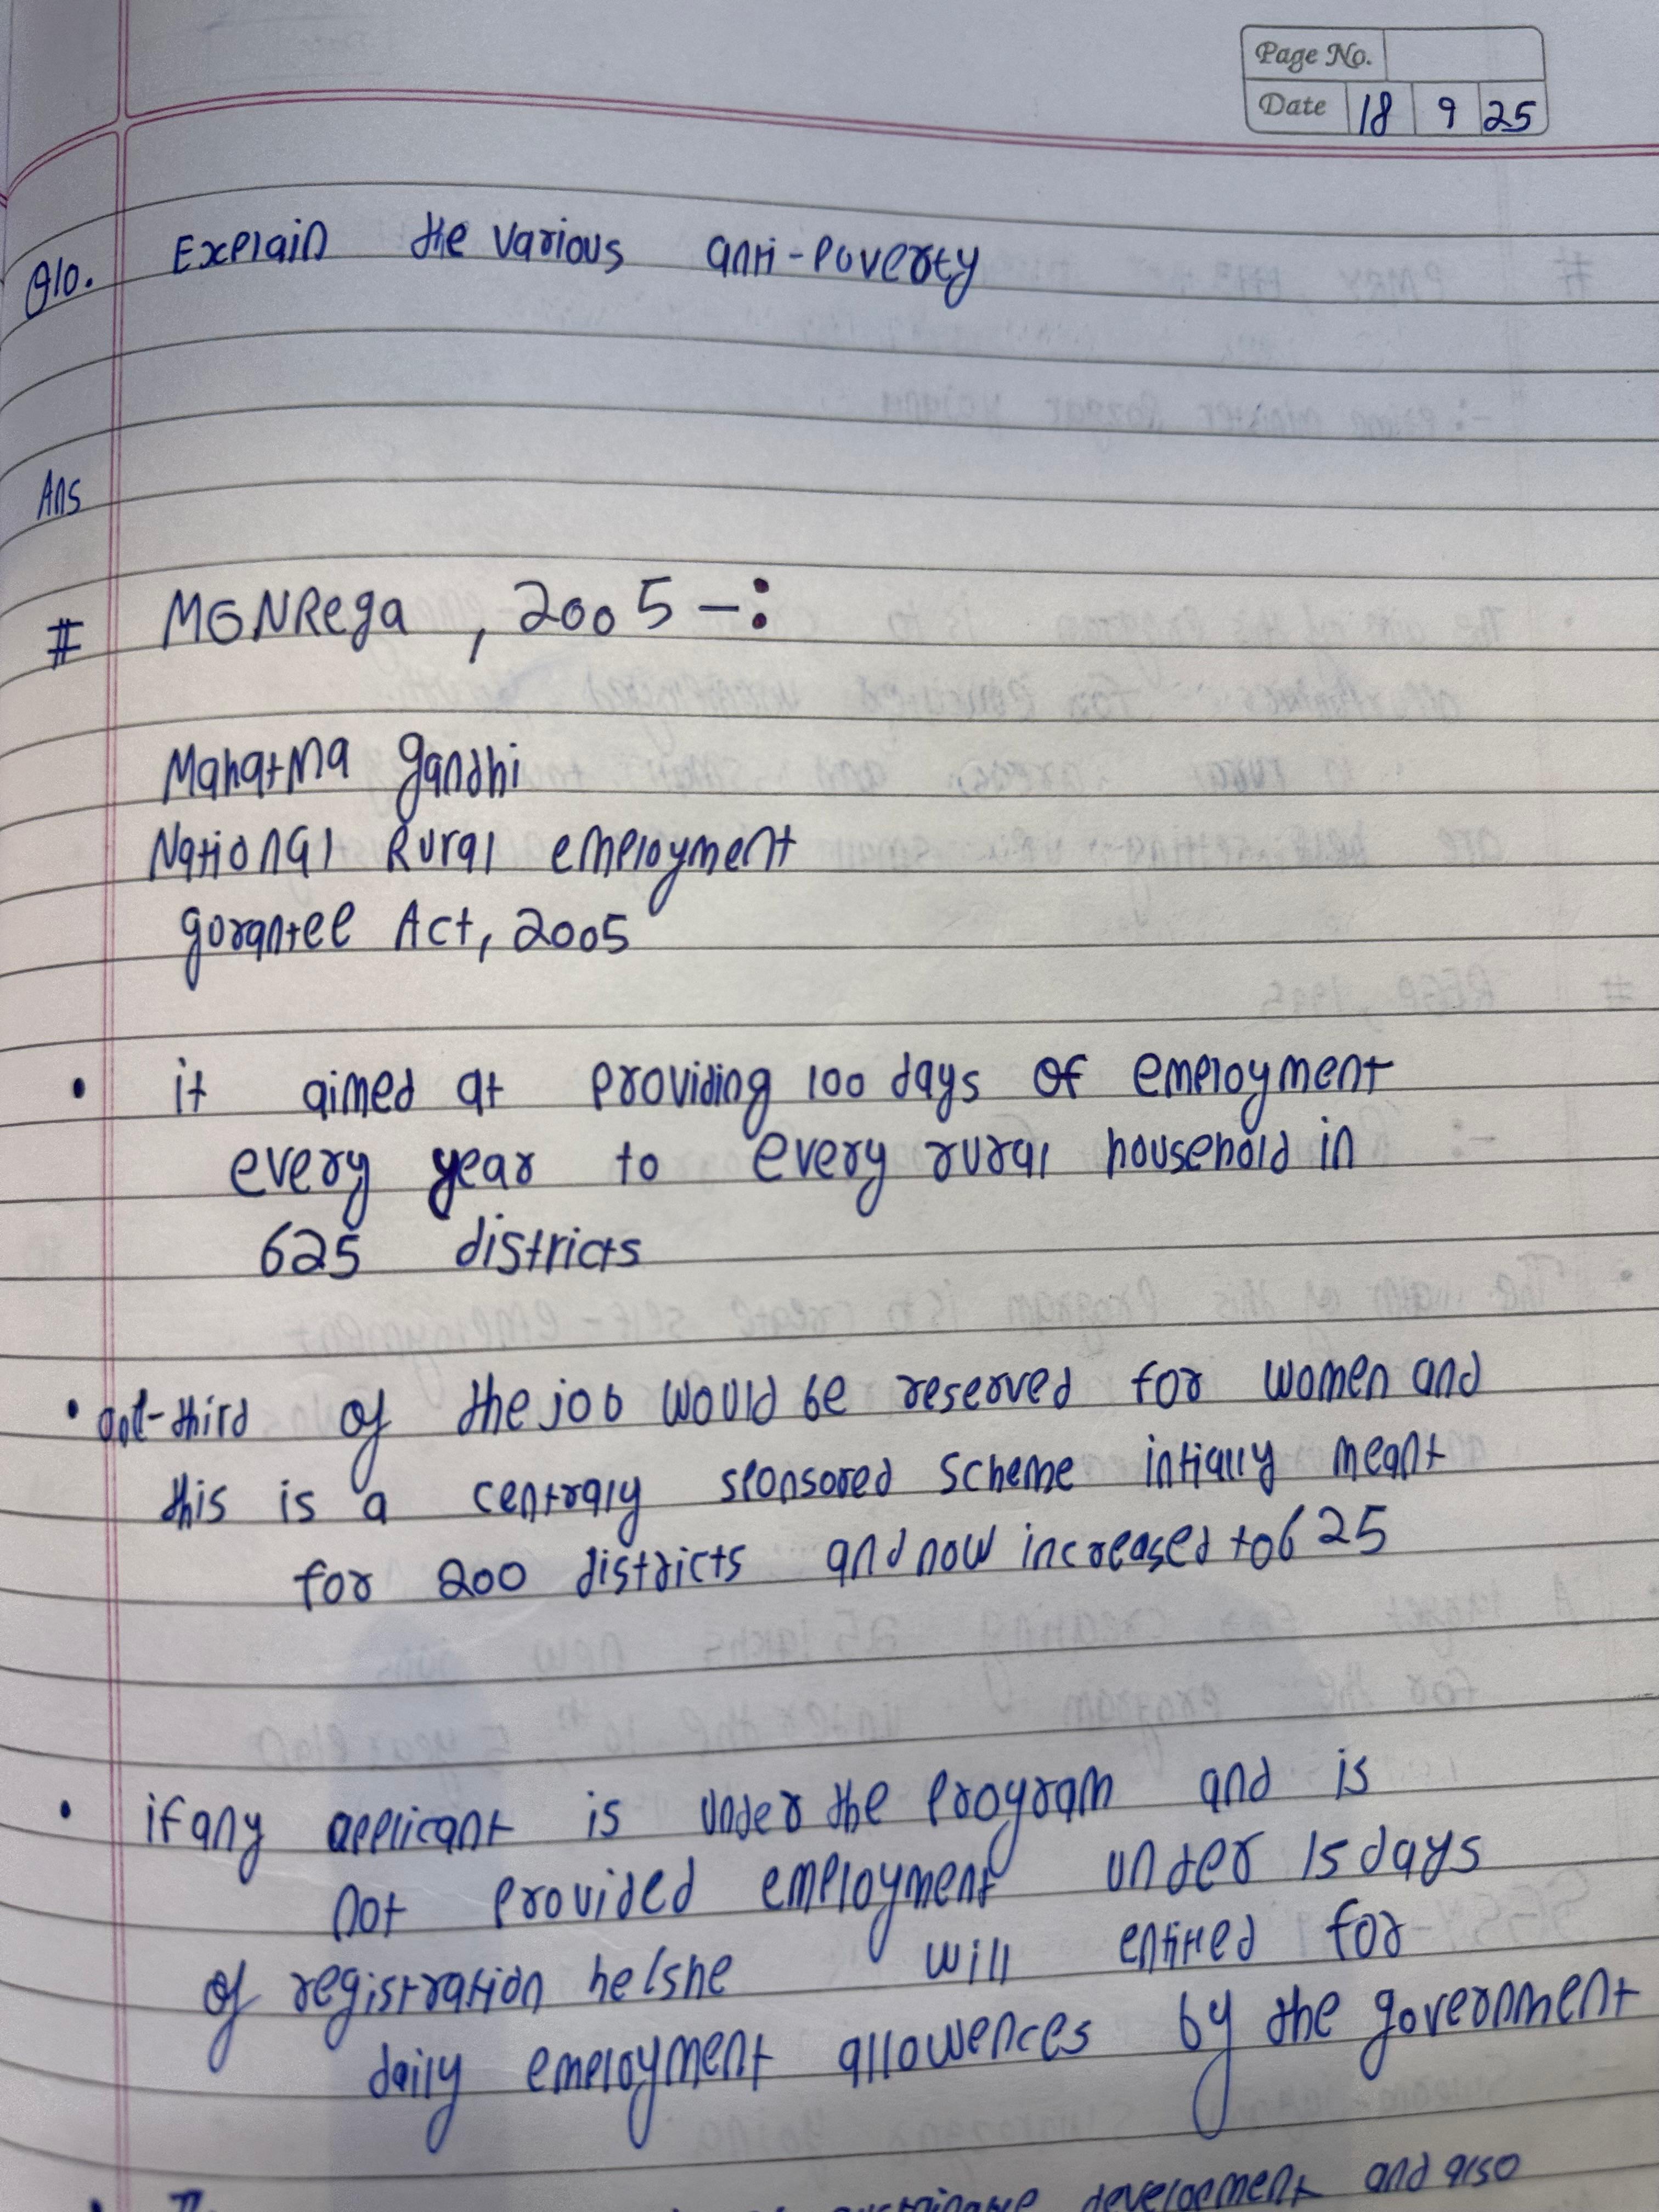 Page No.
Date 18 9 25
Q10. Explain the various anti-Poverty
Ans
# MGNRega , 2005 -:
Mahatma gandhi
National Rural employment
gorantee Act, 2005
• it aimed at Providing 100 days of employment
every year to every rural household in
625 districts
• one-third of the job would be reserved for women and
this is a centraly sponsored scheme intially meant
for 200 districts and now increased to 625
• if any applicant is under the Program and is
not Provided employment under 15 days
of registration he/she will entitled for
daily employment allowences by the government
development and also